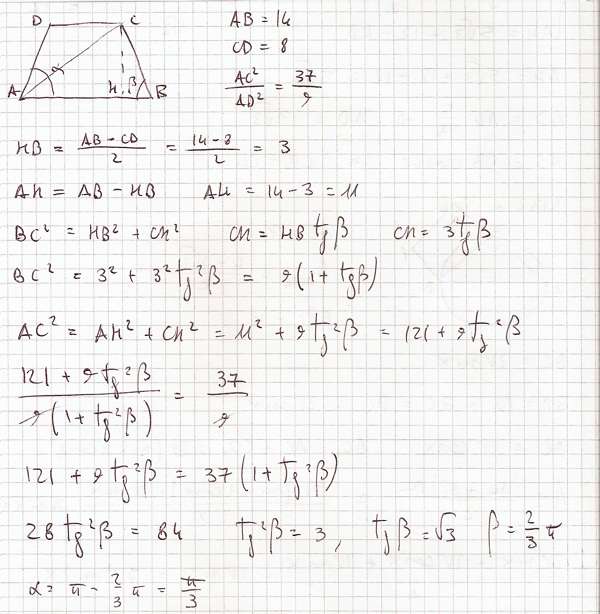 D C
α
A H β B
AB = 14
CD = 8
AC²/AD² = 37/9
HB = (AB - CD)/2 = (14 - 8)/2 = 3
AH = AB - HB AH = 14 - 3 = 11
BC² = HB² + CH² CH = HB tgβ CH = 3tgβ
BC² = 3² + 3² tg²β = 9(1 + tgβ)
AC² = AH² + CH² = 11² + 9tg²β = 121 + 9tg²β
(121 + 9tg²β)/(9(1 + tg²β)) = 37/9
121 + 9tg²β = 37(1 + tg²β)
28tg²β = 84 tg²β = 3, tgβ = √3 β = 2/3 π
α = π - 2/3 π = π/3